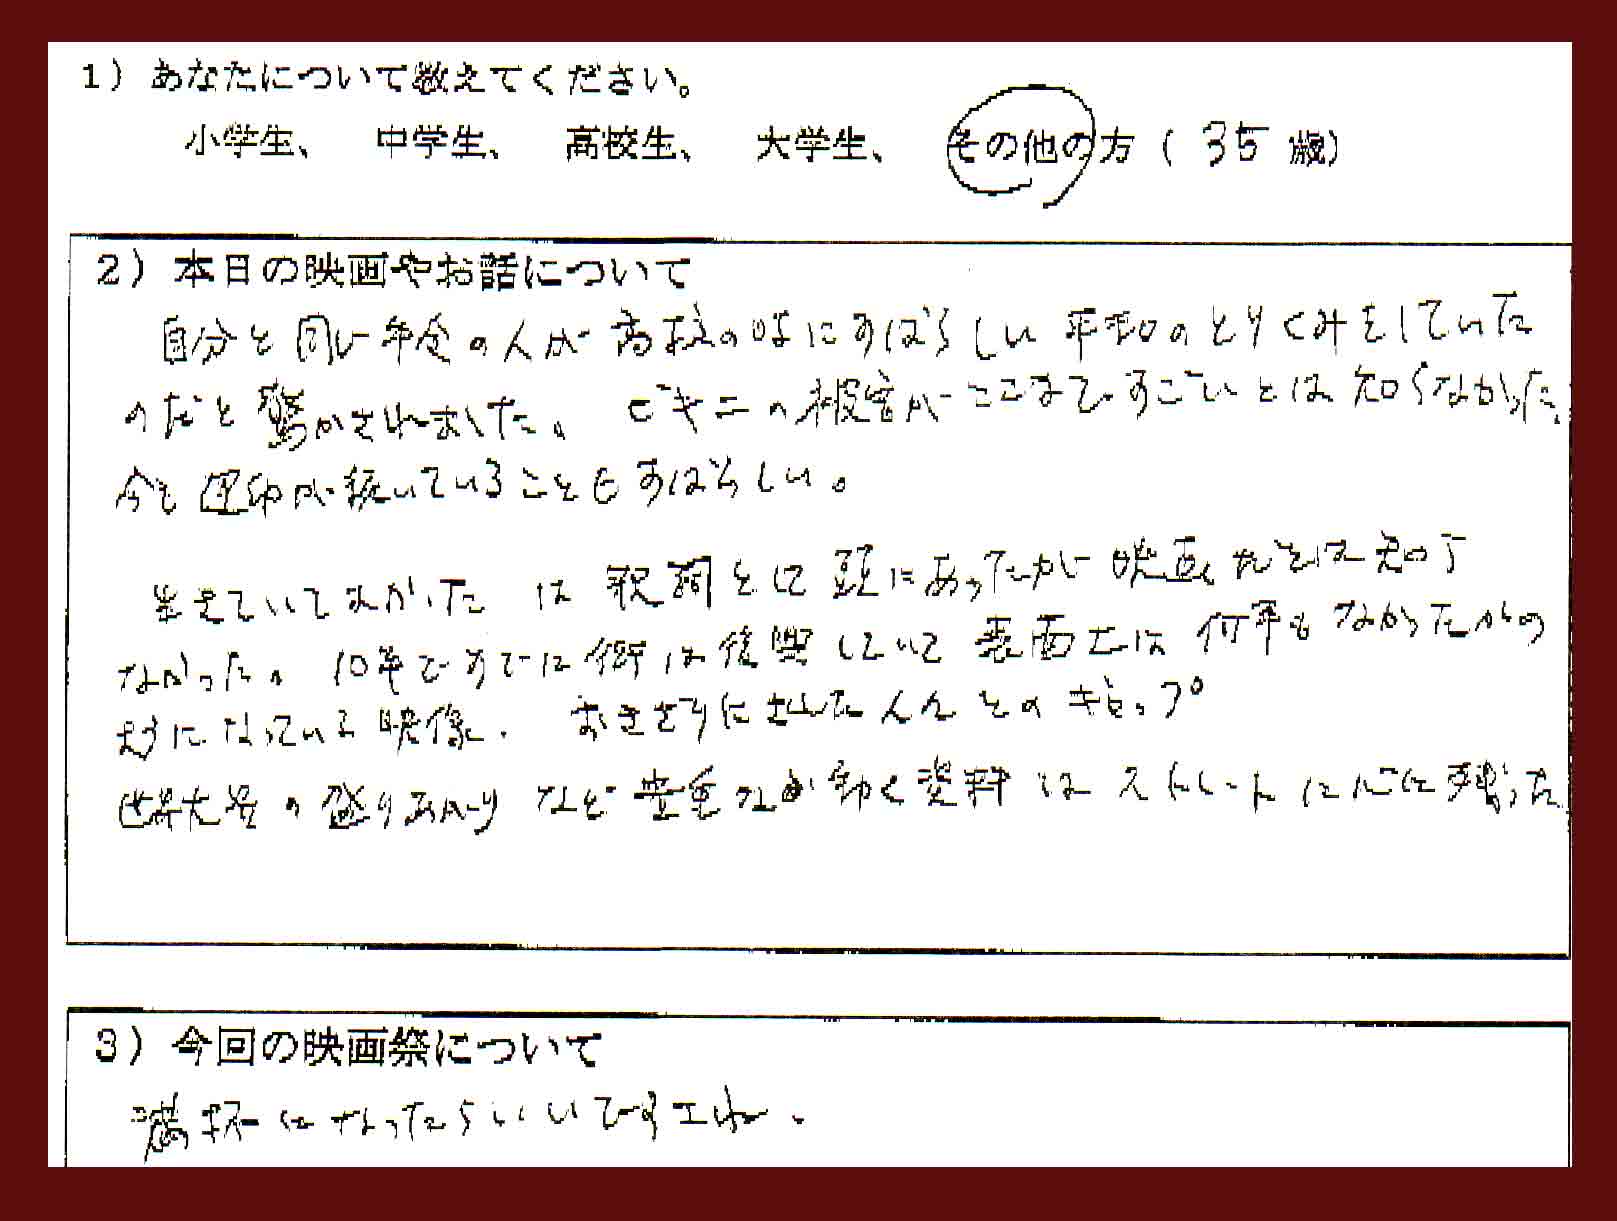 1）あなたについて教えてください。
小学生、 中学生、 高校生、 大学生、 その他の方（ 35 歳）
2）本日の映画やお話について
自分と同じ年令の人が高校の時にすばらしい平和のとりくみをしていた
のだと驚かされました。ビキニの被害がここまですごいとは知らなかった。
今も運動が続いていることもすばらしい。
生きていてよかった は歌詞として頭にあったが映画だとは知ら
なかった。10年ですでに街は復興していて表面上は何事もなかったかの
ようになっている映像。おきざりにされた人々とのギャップ
世界大会の盛り上がりなど貴重な 動く資料はストレートに心に残った
3）今回の映画祭について
満杯になったらいいですよね。